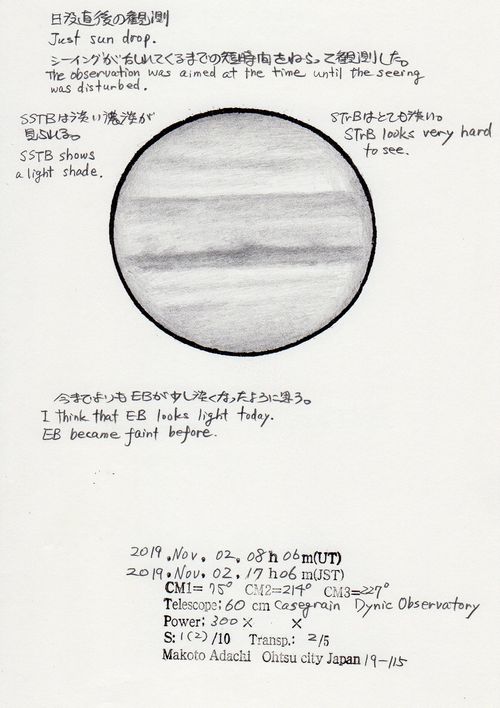 日没直後の観測
Just sun drop.
シーイングがみだれてくるまでの短時間をねらって観測した。
The observation was aimed at the time until the seeing
was disturbed.
SSTBは淡い濃淡が
見られる。
SSTB shows
a light shade.
STrBはとても淡い。
STrB looks very hard
to see.
今までよりもEBが少し淡くなったように思う。
I think that EB looks light today.
EB became faint before.
2019.Nov. 02. 08h 06m(UT)
2019.Nov. 02. 17h06m(JST)
CM1= 75° CM2=214° CM3=227°
Telescope; 60 cm Casegrain Dynic Observatory
Power; 300× ×
S: 1(2)/10 Transp.: 2/5
Makoto Adachi Ohtsu city Japan 19-115